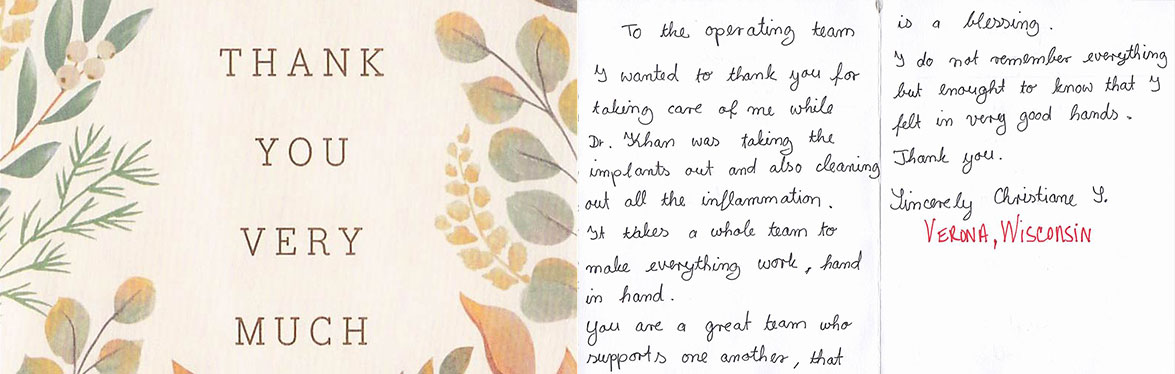 THANK
YOU
VERY
MUCH
To the operating team
I wanted to thank you for
taking care of me while
Dr. Khan was taking the
implants out and also cleaning
out all the inflammation.
It takes a whole team to
make everything work, hand
in hand.
You are a great team who
supports one another, that
is a blessing.
I do not remember everything
but enought to know that I
felt in very good hands.
Thank you.
Sincerely Christiane S.
VERONA, WISCONSIN